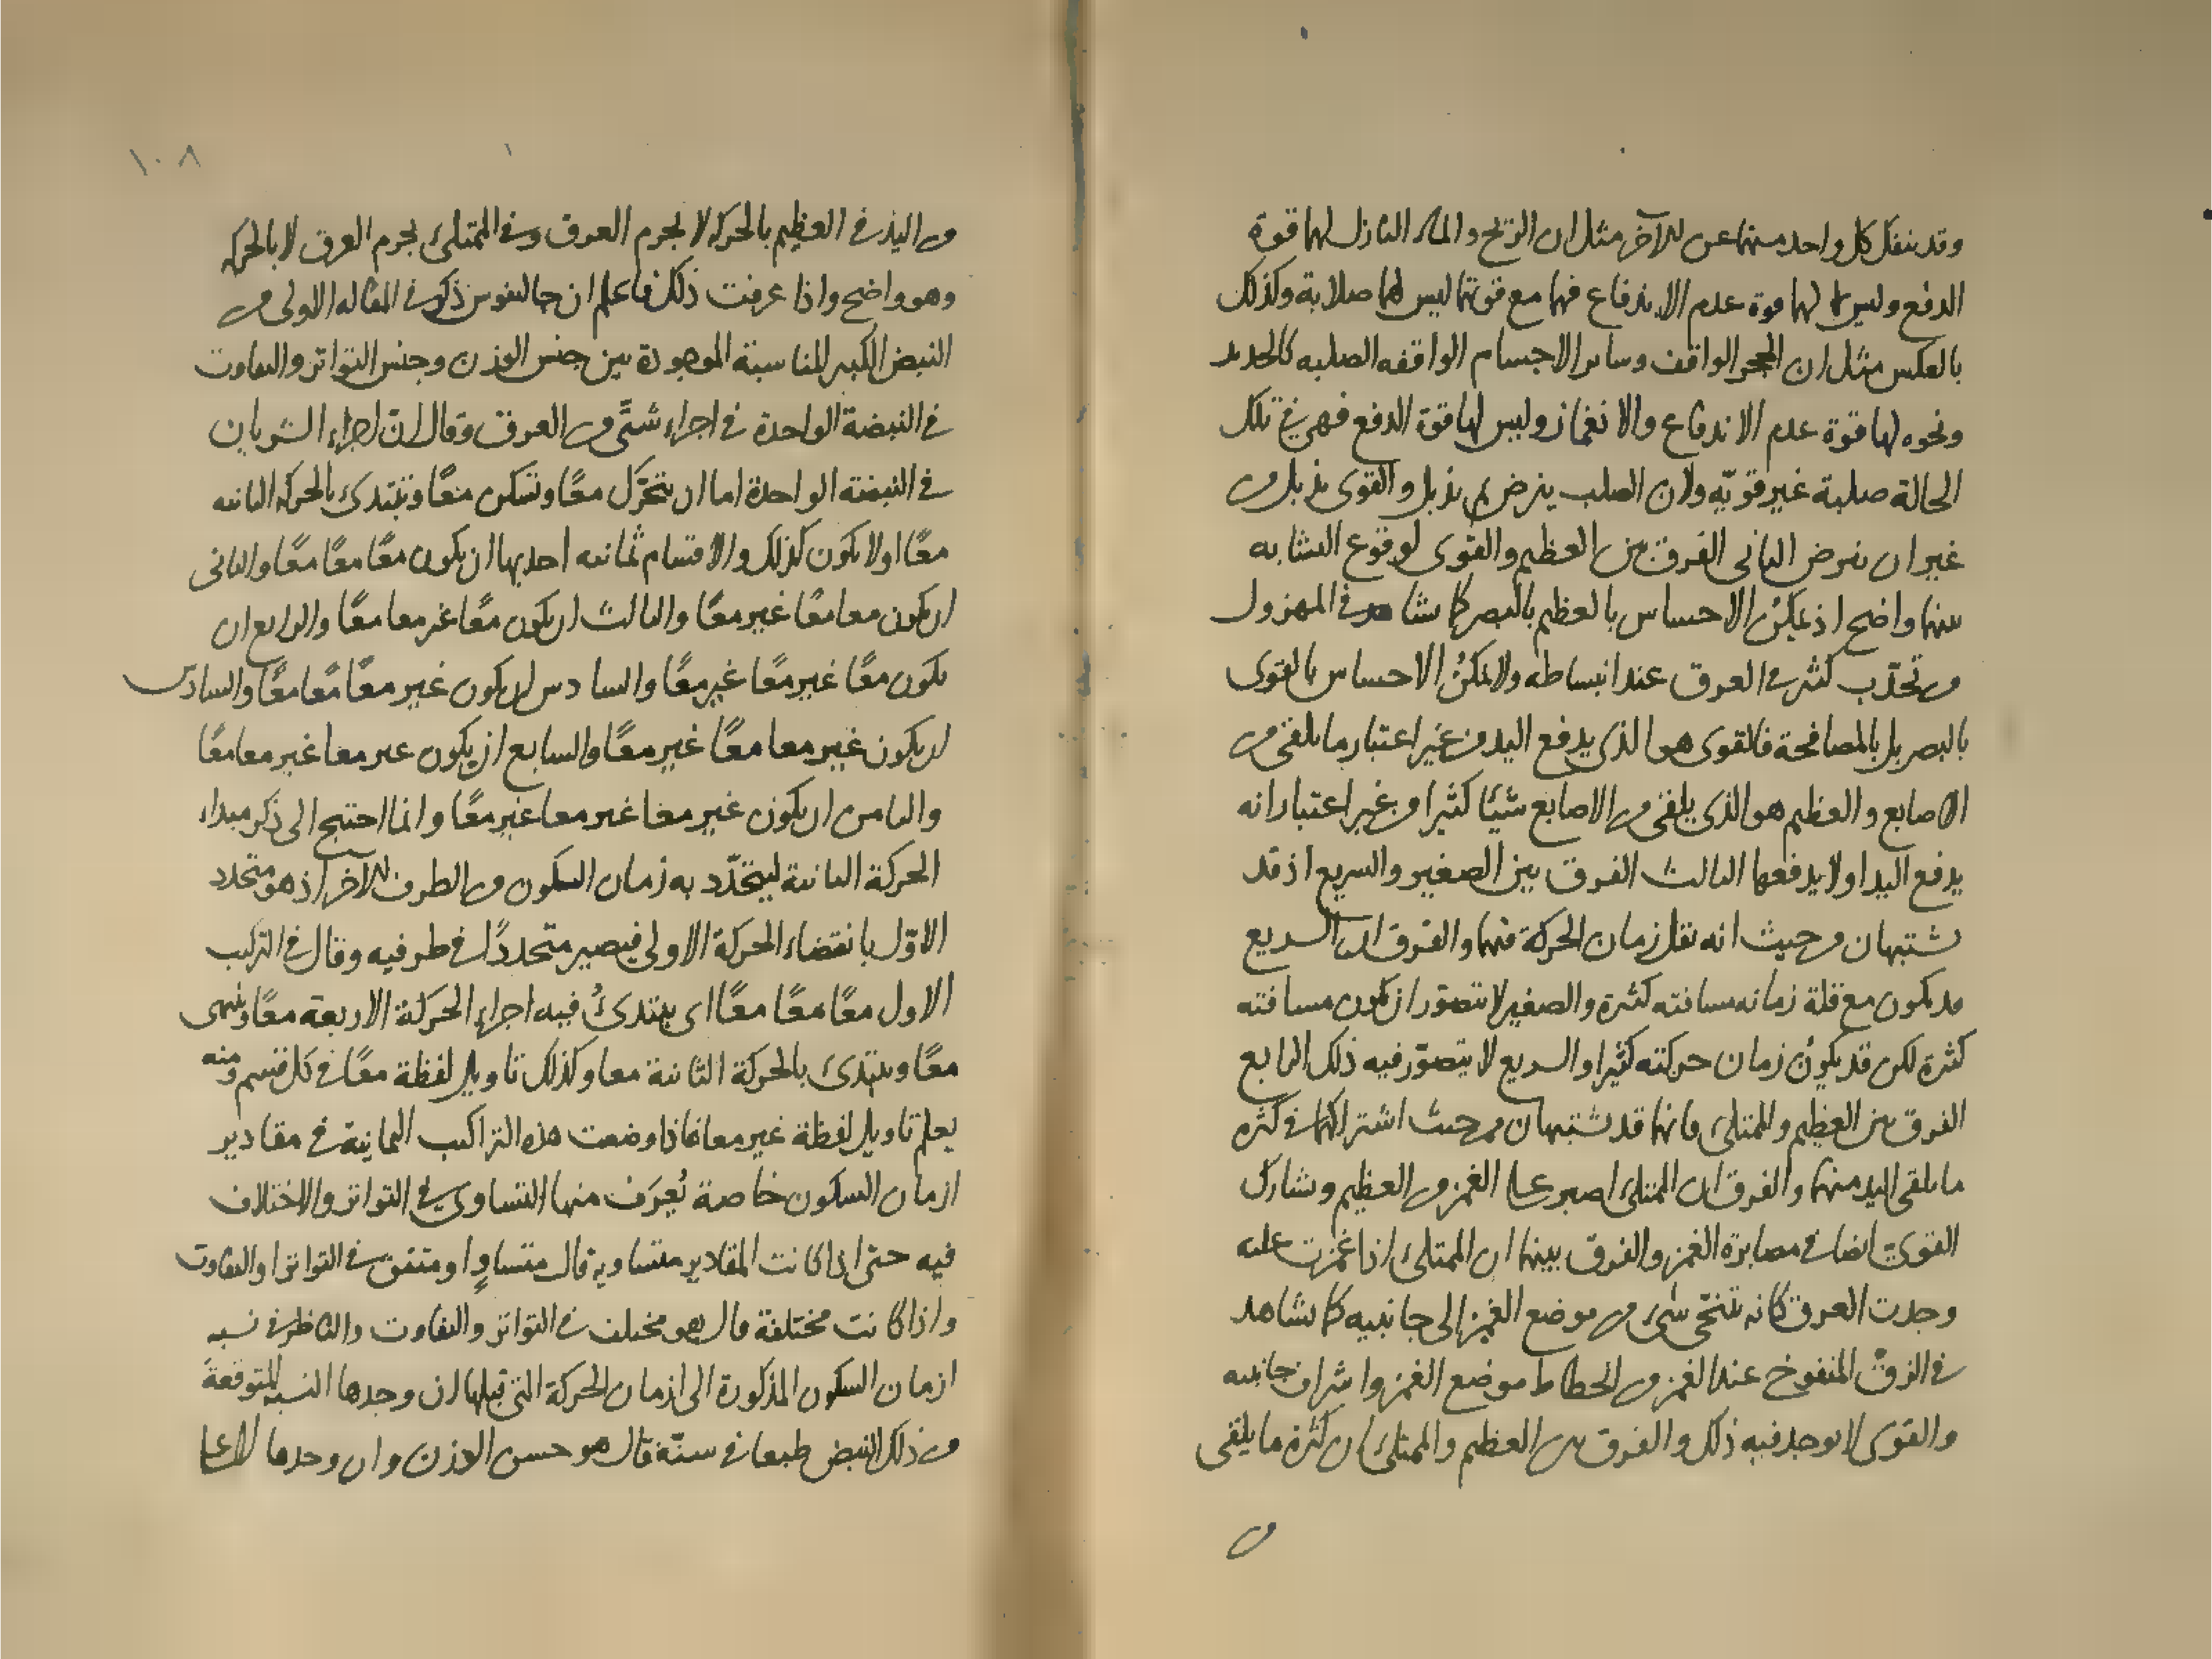 وقد ينفك كل واحد منهما عن الآخر مثل ان الريح والماء النازل لهما قوة
الدفع وليس لهما قوة عدم الاندفاع فهما مع قوتهما ليس لهما صلابة وكذلك
بالعكس مثل ان الحجر الواقف وساير الاجسام الواقفه الصلبه كالحديد
ونحوه لها قوة عدم الاندفاع والانغماز وليس لها قوة الدفع فهى فى تلك
الحالة صلبة غير قويّه ولان الصلب يترضض ثم يذبل والقوى يذبل من
غير ان يترضض الثانى الفرق بين العظيم والقوى لوقوع التشابه
بينهما واضح اذ يمكن الاحساس بالعظيم بالبصر كما يشاهد فى المهزول
من تحدّب كثير فى العرق عند انبساطه ولا يمكنُ الاحساس بالقوى
بالبصر بل بالمصافحة فالقوى هو الذى يدفع اليد من غير اعتبار ما يلقى من
الاصابع والعظيم هو الذى يلقى من الاصابع شيئا كثيرا من غير اعتبار انه
يدفع اليد او لا يدفعها الثالث الفرق بين الصغير والسريع اذ قد
يشتبهان من حيث انه يقل زمان الحركة فيهما والفرق ان السريع
قد يكون مع قلة زمانه مسافته كثيرة والصغير لا يتصوّر ان يكون مسافته
كثيرة لكن قد يكون زمان حركته كثيرا والسريع لا يتصوّر فيه ذلك الرابع
الفرق بين العظيم والممتلئ فانهما قد يشتبهان من حيث اشتراكهما فى كثرة
ما يلقى اليد منهما والفرق ان الممتلئ اصبر على الغمز من العظيم ويشارك
القوىّ ايضا فى مصابرة الغمز والفرق بينهما ان الممتلئ اذا غمزت عليه
وجدت العرق كانه تنحّى شئ من موضع الغمز الى جانبيه كما يشاهد
فى الزقّ المنفوخ عند الغمز من انحطاط موضع الغمز واشراف جانبيه
والقوى لا يوجد فيه ذلك والفرق بين العظيم والممتلئ ان كثرة ما يلقى
من
١٠٨
من اليد فى العظيم بالحركه لا بجرم العرق وفى الممتلئ بجرم العرق لا بالحركه
وهو واضح واذا عرفت ذلك فاعلم ان جالينوس ذكر فى المقاله الاولى من
النبض الكبير المناسبة الموجودة بين جنس الوزن وجنس التواتر والتفاوت
فى النبضة الواحدة فى اجزاء شتّى من العرق وقال انّ اجزاء الشريان
فى النبضة الواحدة اما ان يتحرّك معًا وتسكن معًا وتبتدئ بالحركه الثانيه
معًا او لا يكون كذلك والاقسام ثمانيه احدها ان يكون معًا معًا معًا والثانى
ان يكون معا معًا غير معًا والثالث ان يكون معًا غير معا معًا والرابع ان
يكون معًا غير معًا غير معًا والسادس ان يكون غير معًا معًا معًا والسادس
ان يكون غير معا معًا غير معًا والسابع ان يكون غير معا غير معا معًا
والثامن ان يكون غير معا غير معا غير معًا وانما احتيج الى ذكر مبداء
الحركة الثانية ليتحدّد به زمان السكون من الطرف الآخر اذ هو متحدد
الاوّل بانقضاء الحركة الاولى فيصير متحددًا فى طرفيه وقال فى التركيب
الاول معًا معًا معًا اى يبتدئُ فيه اجزاء الحركة الاربعة معًا وينتهى
معًا ويبتدئ بالحركة الثانية معا وكذلك تاويل لفظة معًا فى كل قسم ومنه
يعلم تاويل لفظة غير معا فاذا وضعت هذه التراكيب الثمانية فى مقادير
ازمان السكون خاصة يُعرَف منها التساوى فى التواتر والاختلاف
فيه حتى اذا كانت المقادير متساوية قال متساوٍ او متفق فى التواتر او التفاوت
واذا كانت مختلفة قال هو مختلف فى التواتر والتفاوت والناظر فى نسبه
ازمان السكون المذكورة الى ازمان الحركة التى قبلها ان وجدها النسبه المتوقعةَ
من ذلك النبض طبعا فى سنّه قال هو حسن الوزن وان وجدها لا على